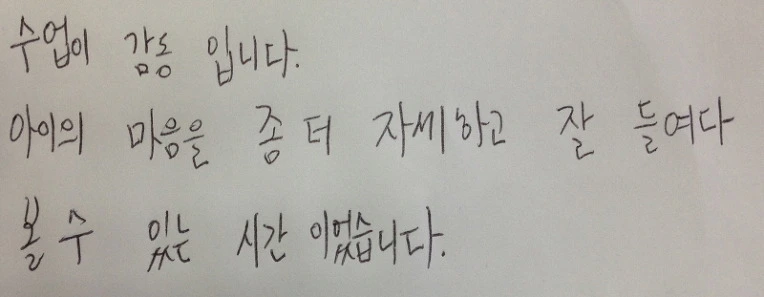 수업이 감동 입니다.
아이의 마음을 좀 더 자세하고 잘 들여다
볼 수 있는 시간 이었습니다.